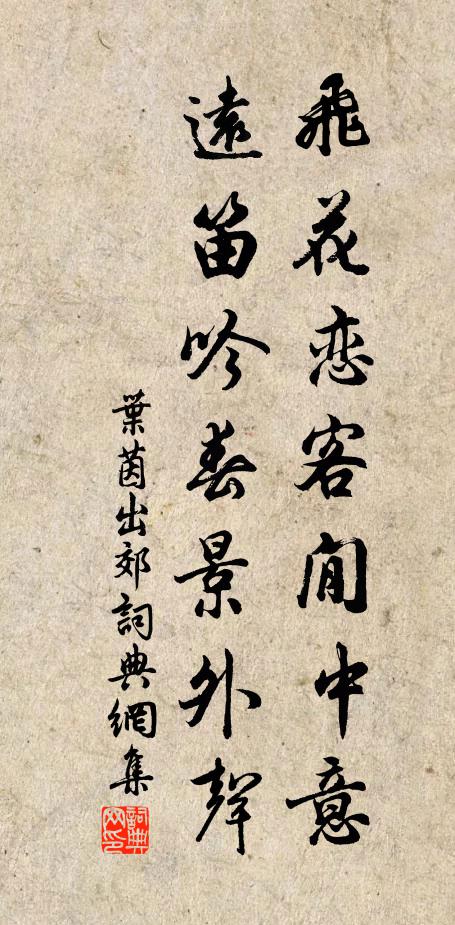 飛花恋客閒中意
遠笛吟春景外聲
葉茵出郊詞典網集
詞典
网印